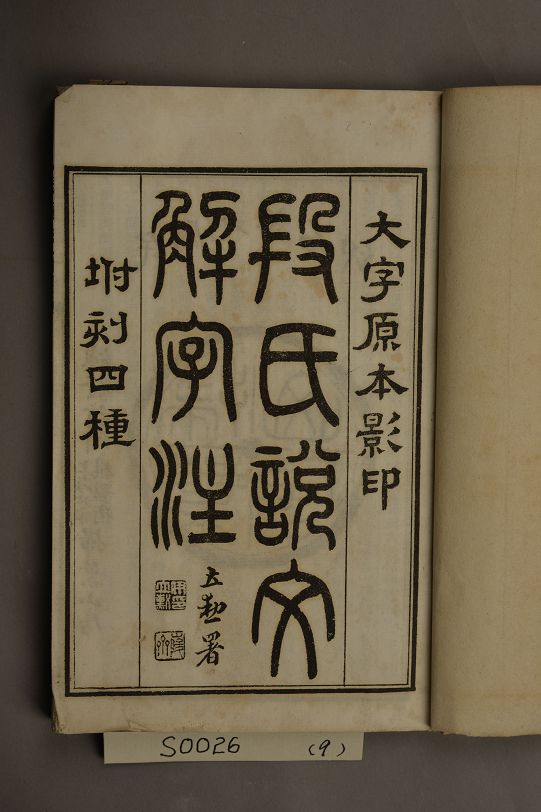 大字原本影印
段氏說文
解字注
署
坿刻四種
S0026 (9)